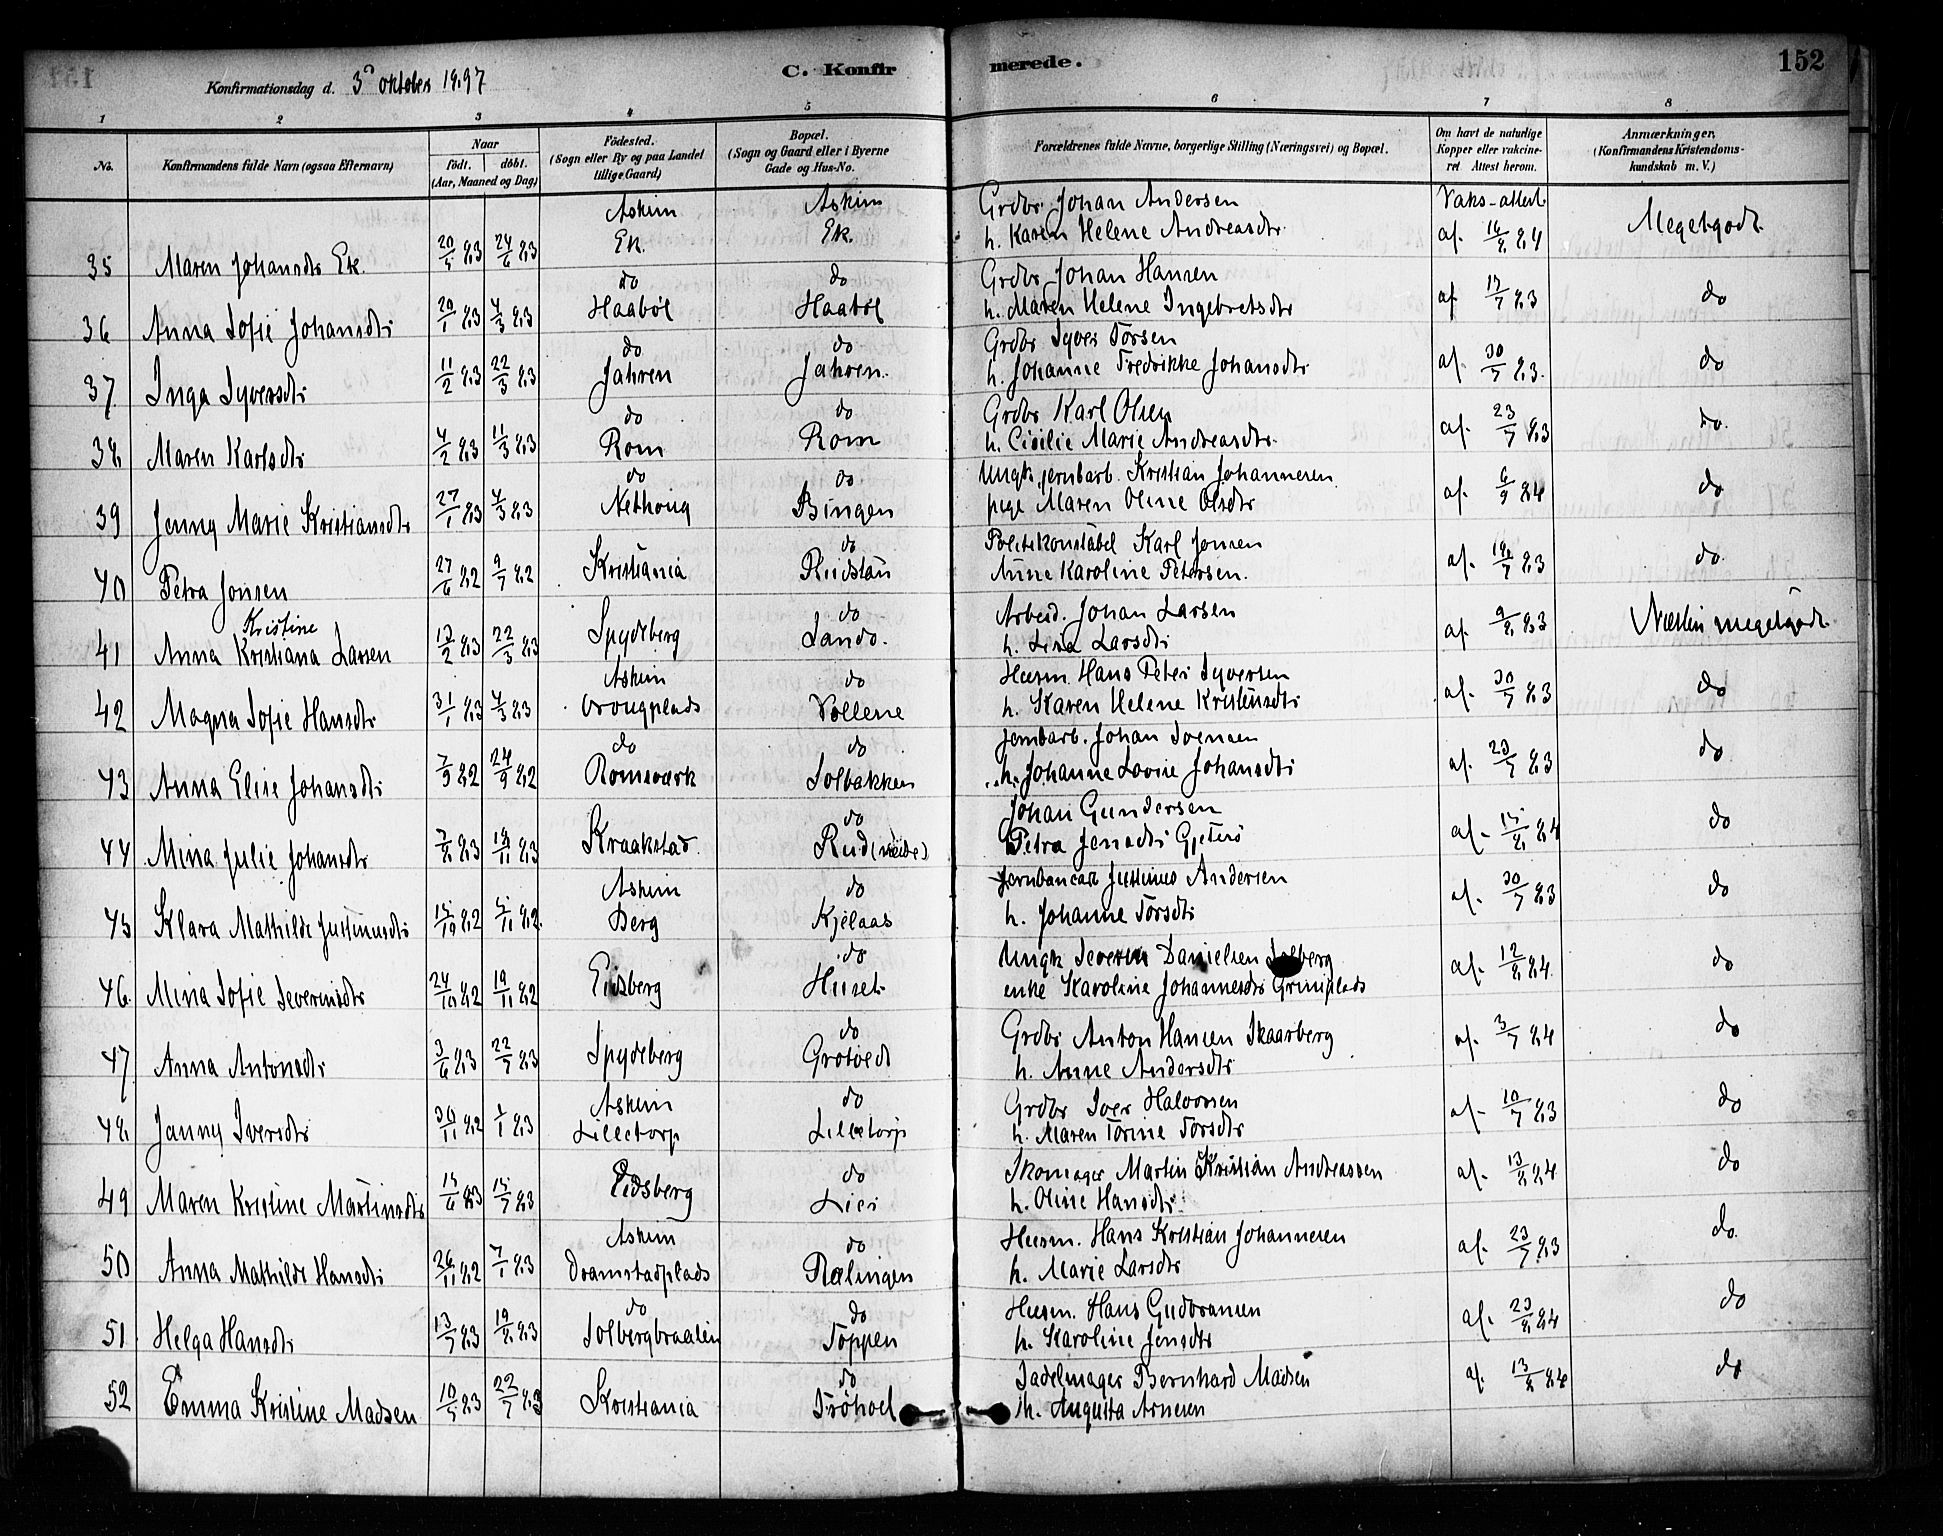 152
C. Konfirmerede.
Konfirmationsdag d. 3d oktober 1897
1 2 3 4 5 6 7 8
No.
Konfirmandens fulde Navn (ogsaa Efternavn)
Naar
födt. döbt.
(Aar, Maaned og Dag)
Födested.
(Sogn eller By og paa Landet
tillige Gaard)
Bopæl.
(Sogn og Gaard eller i Byerne
Gade og Hus-No.
Forældrenes fulde Navne, borgerlige Stilling (Næringsvei) og Bopæl.
Om havt de naturlige
Kopper eller vakcine-
ret Attest herom.
Anmærkninger,
(Konfirmandens Kristendoms-
kundskab m. V.)
Askim Askim Grdbr Johan Andersen Vaks-attest
35 Maren Johansdtr Ek. 20/5 83 24/6 83 Ek. Ek. h. Karen Helene Andreasdtr af 16/8 84 Megetgodt
do do Grdbr Johan Hansen
36 Anna Sofie Johansdtr 20/1 83 4/3 83 Haaböl Haaböl h. Maren Helene Ingebretsdtr af 17/7 83 do
do do Grdbr Syver Torsen
37 Inga Syversdtr 11/2 83 22/3 83 Jahren Jahren h. Johanne Fredrikke Johansdtr af 30/7 83 do
do do Grdbr Karl Olsen
38 Maren Karlsdtr 4/2 83 11/3 83 Rom Rom h. Cicilie Marie Andreasdtr af 23/7 83 do
do do Ungk jernbarb. Kristian Johannesen
39 Jenny Marie Kristiansdtr 27/1 83 4/3 83 Bingen pige Maren Oline Olsdtr af 6/9 84 do
do Politikonstabel Karl Jonsen
40 Petra Jonsen 27/6 82 9/7 82 Kristiania Rudstau Anne Karoline Petersen. af 83 do
Kristine do Arbeid. Johan Larsen
41 Anna Kristiana Larsen 83 22/3 83 Spydeberg Sando. h. Lina Larsdtr af 9/8 83 Næsten megetgodt
Askim do Husm. Hans Peter Syversen
42 Magna Sofie Hansdtr 31/1 83 4/3 83 Vollene h. Karen Helene Kristensdtr af 30/7 83 do
do do Jernbarb. Johan Svensen
43 Anna Elise Johansdtr 7/9 82 24/9 82 Romsværk Solbakken h. Johanne Lovise Johansdtr af 23/7 83 do
do Johan Gundersen
44 Mina Julie Johansdtr 7/8 83 83 Kraakstad Rud Petra Jensdtr af 15/8 84 do
Askim do Justinus Andersen
45 Klara Mathilde Justinusdtr 15/10 82 5/11 82 Berg Kjelaas h. Johanne Torsdtr af 30/7 83 do
do Ungk Severin Danielsen Solberg
46 Mina Sofie Severinsdtr 24/10 82 19/11 82 Eidsberg Huset enke Karoline Johannesdtr Griniplads af 12/8 84 do
do Grdbr Anton Hansen Skaarberg
47 Anna Antonsdtr 3/6 83 22/7 83 Spydeberg h. Anne Andersdtr af 3/7 84 do
Askim do Grdbr Iver Halvorsen
48 Janny Iversdtr 30/11 82 1/1 83 Lilletorp Lilletorp h. Maren Torine Torsdtr af 10/7 83 do
do Skomager Martin Kristian Andreassen
49 Maren Kristine Martinsdtr 15/6 83 15/7 83 Eidsberg Lier h. Oline Hansdtr af 13/8 84 do
Askim do Husm. Hans Kristian Johannesen
50 Anna Mathilde Hansdtr 26/11 82 7/1 83 Dramstadplads Rælingen h. Marie Larsdtr af 23/7 83 do
do do Husm. Hans Gudbransen
51 Helga Hansdtr 13/7 83 19/8 83 Solbergbraaten Toppen h. Karoline Jensdtr af 23/8 84 do
do Sadelmager Bernhard Madsen
52 Emma Kristine Madsen 10/5 83 22/7 83 Kristiania Fröhoel h. Augusta Arnesen af 13/8 84 do